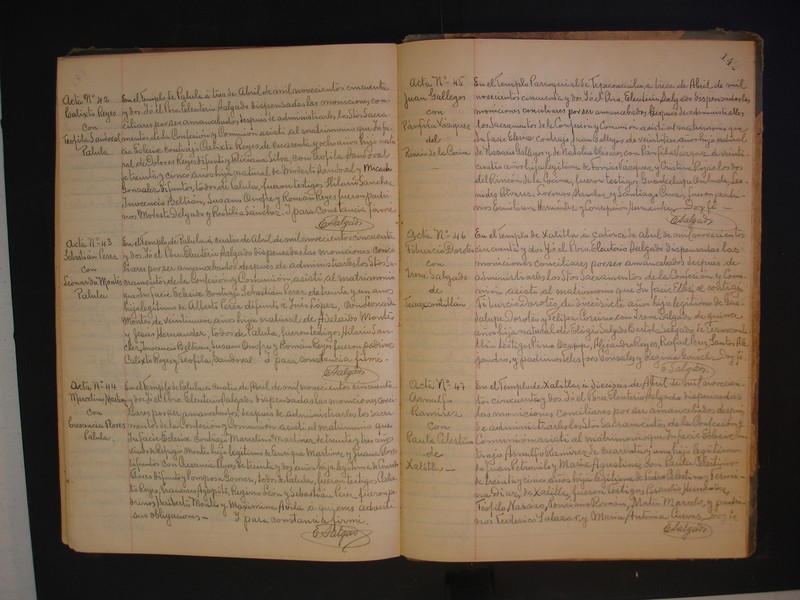 Acta N° 42
Calixto Reyes
con
Teofila Sandoval
Palula
En el Templo de Palula à tres de Abril de mil novecientos cincuenta
y dos Yo el Pbro. Eleuterio Salgado dispensadas las moniciones con-
ciliares por ser amancebados, después de administrarles los Stos Sacra-
mentos de la Confesión y Comunión asistí al matrimonio que In fa-
cie Eclesie contrajo Calixto Reyes de cuarenta y ocho años hijo natu-
ral de Dolores Reyes difunto y Feliciana Silva, con Teofila Sandoval
de treinta y cinco años hija natural de Modesto Sandoval y Micaela
Gonzalez difuntos, todos de Palula, fueron testigos Hilario Sanchez
Inocencio Beltrán, Susano Onofre y Román Reyes fueron padri-
nos Modesto Delgado y Sánchez. Y para constancia firmé
E. Salgado
Acta N° 43
Sebastian Perez
con
Leonarda Montes
Palula
En el Templo de Palula à cuatro de Abril de mil novecientos cincuenta
y dos Yo el Pbro. Eleuterio Salgado dispensadas las moniciones conci-
liares por ser amancebados después de administrarles los Stos Sa-
cramentos de la Confesión y Comunión asistí al matrimonio
que In facie Eclesie contrajo Sebastian Perez de treinta y un años
hijo legítimo de Alberto Perez difunto e Inés López, con Leonarda
Montes de veintiun años hija natural de Adelaido Montes
y Jesús Hernandez, todos de Palula, fueron testigos Hilario San-
chez, Inocencio Beltrán, Susano Onofre y Román Reyes fueron padrinos
Calixto Reyes y Teofila Sandoval y para constancia firmé.
E. Salgado
Acta N° 44
Marcelino Martinez
con
Crecencia Flores
Palula.
En el Templo de Palula à cuatro de Abril de mil novecientos cincuenta
y dos Yo el Pbro. Eleuterio Salgado, dispensadas las moniciones conci-
liares por ser amancebados, después de administrarles los Sacra-
mentos de la Confesión y Comunión asistí al matrimonio que
In facie Eclesie contrajo Marcelino Martinez de treinta y tres años
viudo de Refugio Montes hijo legítimo de Enrique Martinez y Juana Flores
difuntos con Crecencia Flores de treinta y dos años hija legítima de
Flores difunto y Pomposa Gomez, todos de Palula, fueron testigos Calix-
to Reyes, Francisco, Regino León y Sebastian Perez, fueron pa-
drinos Heriberto Montes y Maximina Avila a quienes advertí
sus obligaciones — Y para constancia firmé.
E. Salgado
14.
Acta N° 45
Juan Gallegos
con
Pánfila Vázquez
del
Rincón de la Cocina
En el Templo Parroquial de Tepecoacuilco à trece de Abril de mil
novecientos cincuenta y dos Yo el Pbro. Eleuterio Salgado dispensadas las
moniciones conciliares por ser amancebados, después de administrarles
los Sacramentos de la Confesión y Comunión asistí al matrimonio que
In facie Eclesie contrajo Juan Gallegos de veintiocho años hijo natural
de Nazario Gallegos y de con Pánfila Vázquez de veinti-
cuatro años hija legítima de Tomás Vázquez y Cristina Rojas todos
del Rincón de la Cocina, fueron testigos Guadalupe Andrade, Leo-
nides Alvarez, Lorenzo y Santiago Cruz, fueron padri-
nos Emiliano Hernández y Concepción Hernández. Doy fé
E. Salgado
Acta N° 46
Tiburcio Doroteo
con
Irene Salgado
de
En el Templo de Xalitla à catorce de Abril de mil novecientos
cincuenta y dos Yo el Pbro. Eleuterio Salgado dispensadas las
moniciones conciliares por ser amancebados después de
administrarles los Stos Sacramentos de la Confesión y Comu-
nión asistí al matrimonio que In facie Eclesie contrajo
Tiburcio Doroteo de diecisiete años hijo legítimo de Gua-
dalupe Doroteo y Felipa con Irene Salgado de quince
años hija natural de Eligio Salgado
testigos Pino, Alejandro Reyes, Rafael Perez, Santos Ale-
jandro, y padrinos Celso Gonzalez y Regina Gonzalez Doy fé
E. Salgado
Acta N° 47
Arnulfo
Ramirez
con
Paula Celestino
de
Xalitla —
En el Templo de Xalitla à dieciseis de Abril de mil novecien-
tos cincuenta y dos Yo el Pbro. Eleuterio Salgado dispensadas
las moniciones conciliares por ser amancebados después
de administrarles los Stos Sacramentos, de la Confesión y
Comunión asistí al matrimonio que In facie Eclesie con-
trajo Arnulfo Ramirez de cuarenta y un años hijo legítimo
de Juan y Maria Agustina, con Paula Celestino
de treinta y cinco años hija legítima de Isidro Celestino y
Diaz de Xalitla, fueron testigos
Teofilo Nazario, Ponciano Román, Martin Marcelo, y padri-
nos Federico Salazar, y Maria Antonia Cuevas. Doy fé
E. Salgado